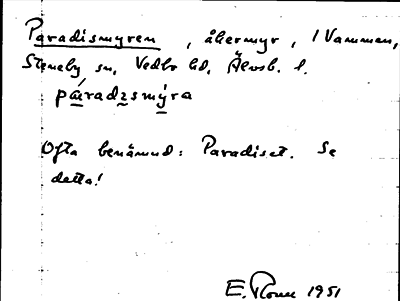 Paradismyren, åkermyr, i Vammen,
Steneby sn, Vedbo hd, Älvsb. l.
páradɪsmýra
Ofta benämnd: Paradiset. Se
detta!
E. 1951